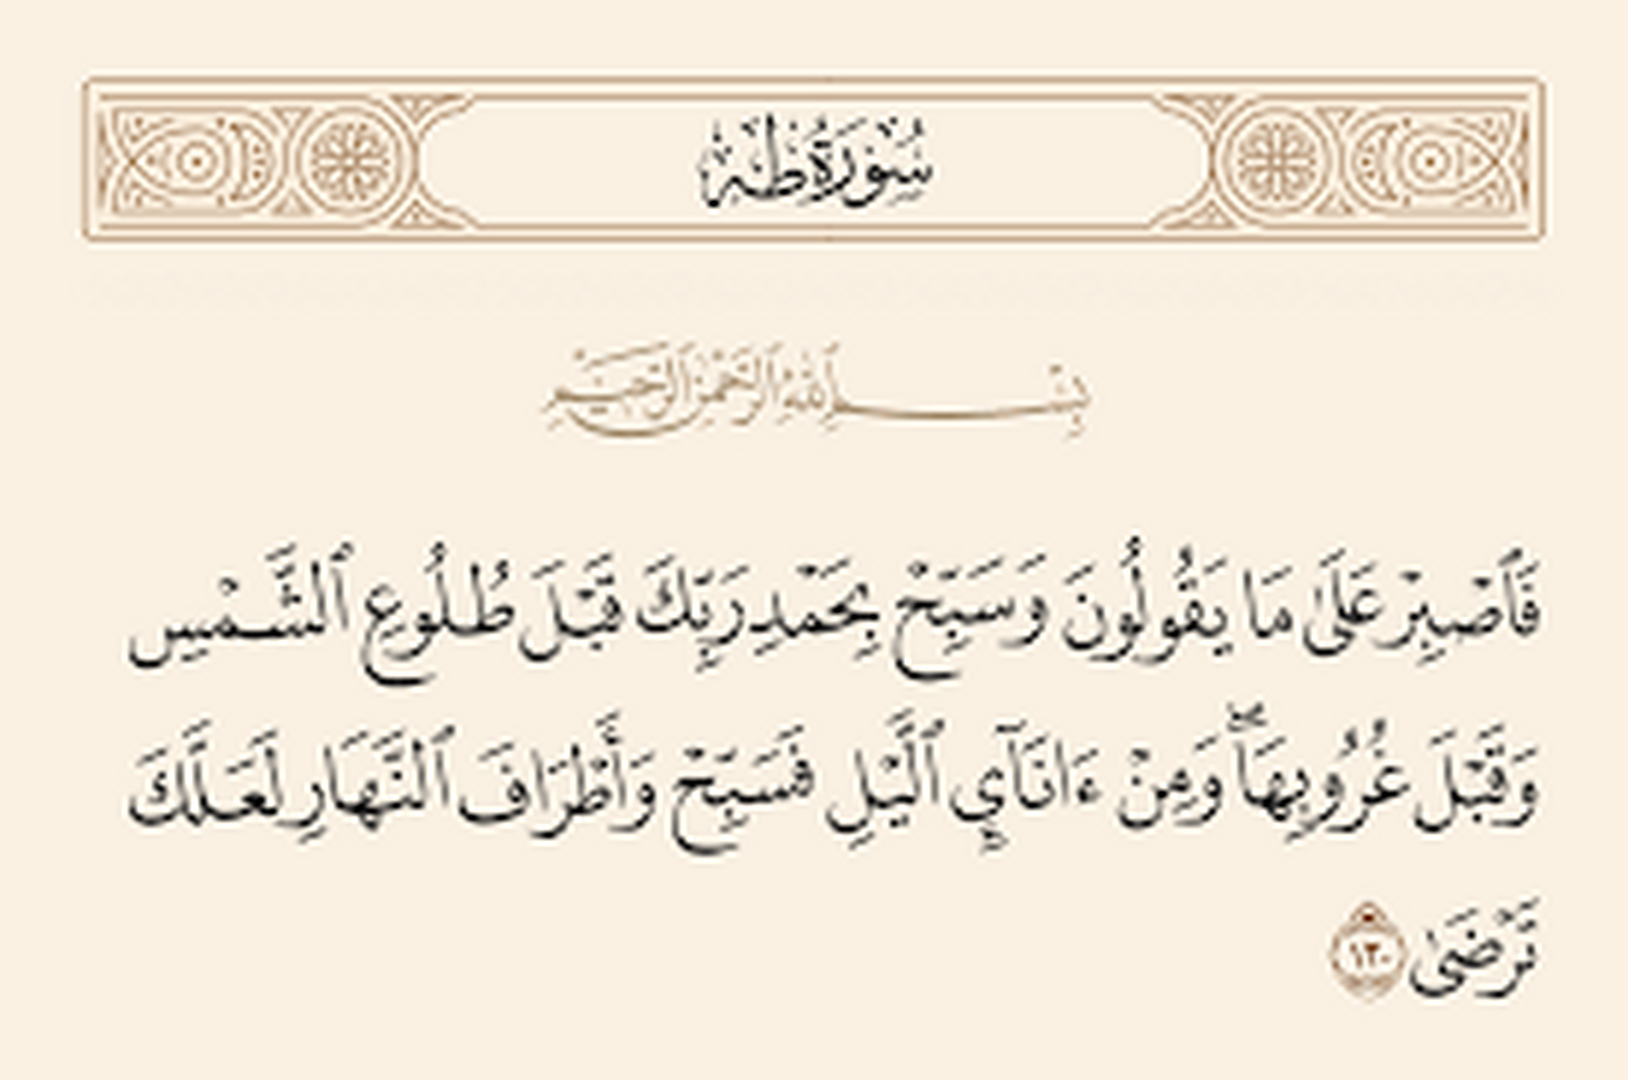 سُورَةُ طه
بِسْمِ ٱللَّهِ ٱلرَّحْمَٰنِ ٱلرَّحِيمِ
فَٱصْبِرْ عَلَىٰ مَا يَقُولُونَ وَسَبِّحْ بِحَمْدِ رَبِّكَ قَبْلَ طُلُوعِ ٱلشَّمْسِ
وَقَبْلَ غُرُوبِهَا ۖ وَمِنْ ءَانَآئِ ٱلَّيْلِ فَسَبِّحْ وَأَطْرَافَ ٱلنَّهَارِ لَعَلَّكَ
تَرْضَىٰ ١٣٠